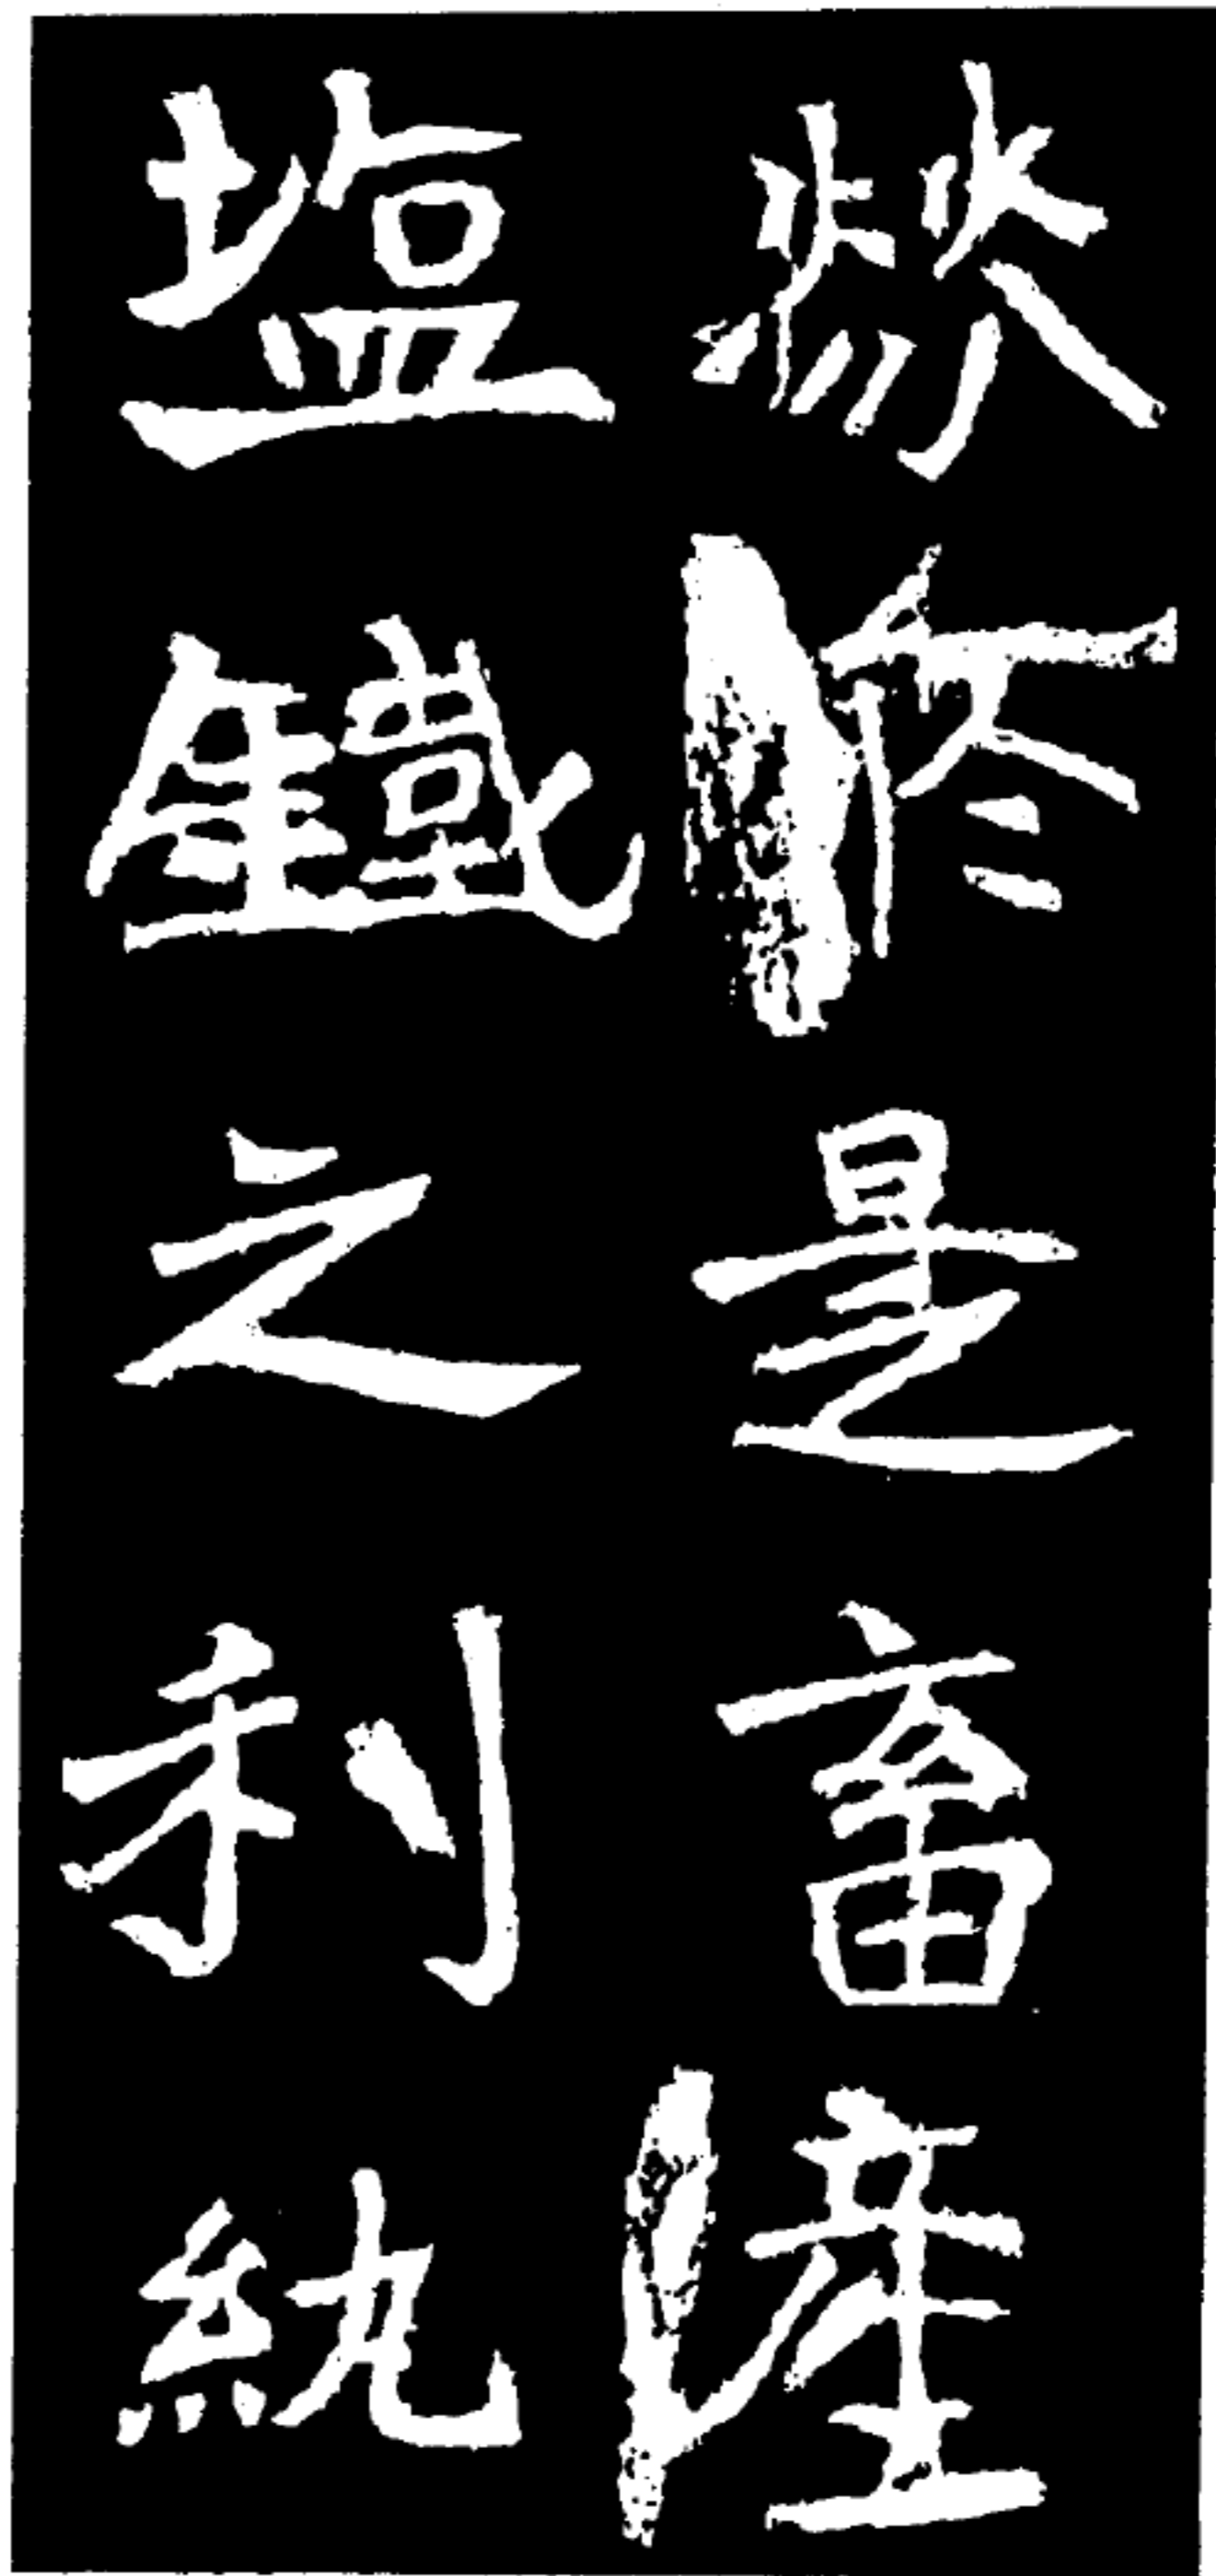 於是畜産
塩鐵之利紈